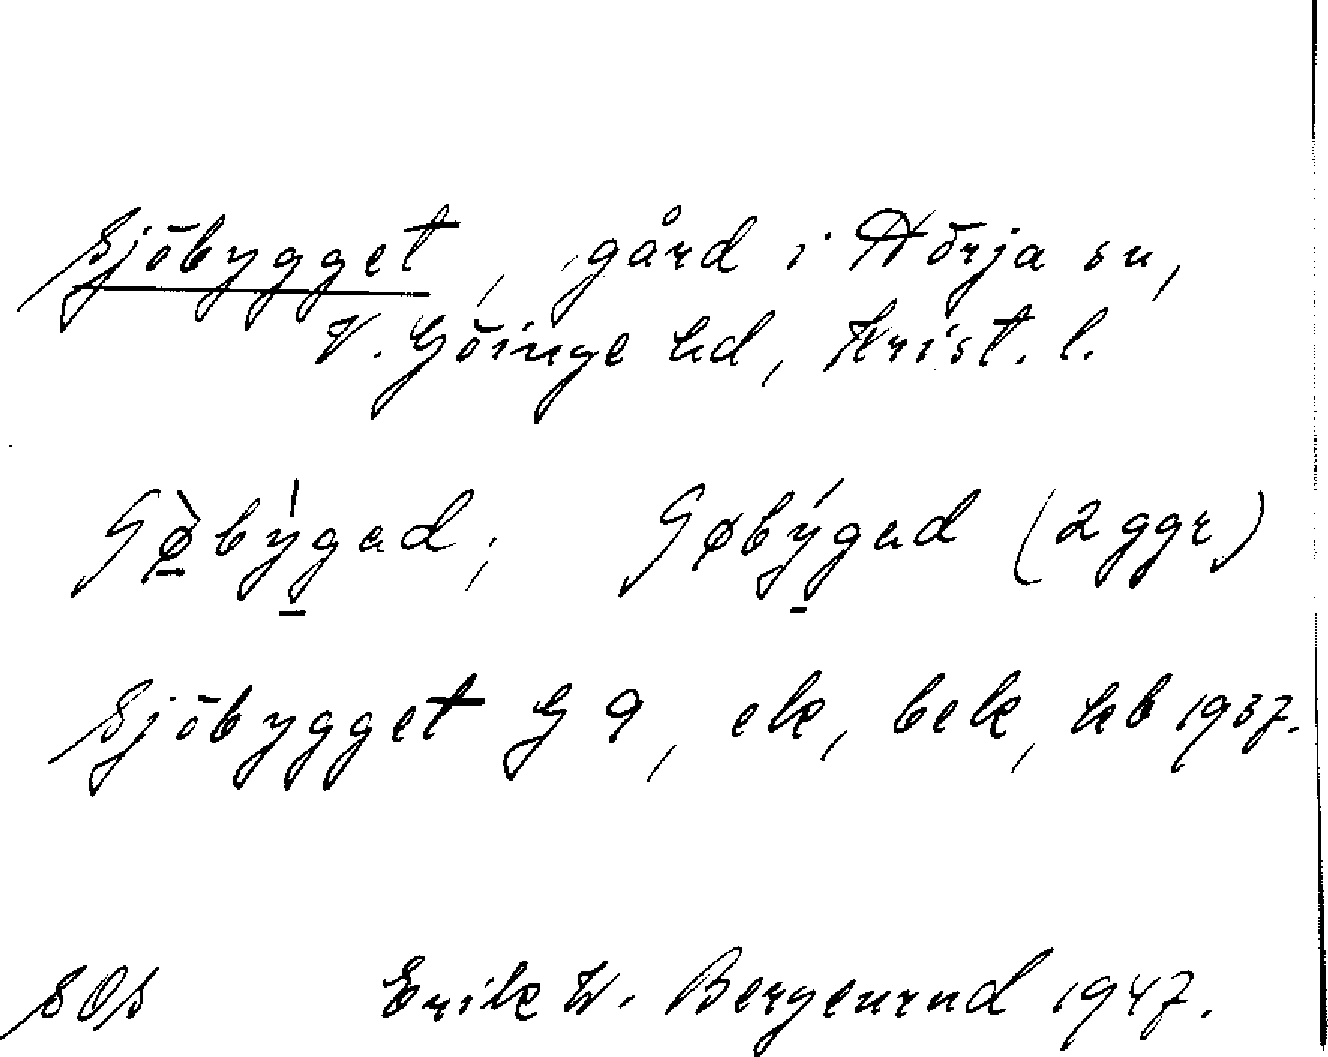 Sjöbygget, gård i Hörja sn,
V. Göinge hd, Krist. l.
Gø̱̀bẏ̱gad; Gøbý̱gad (2 ggr)
Sjöbygget G 9, ek, bek, hb 1937.
SOS Erik W. Bergenrud 1947.